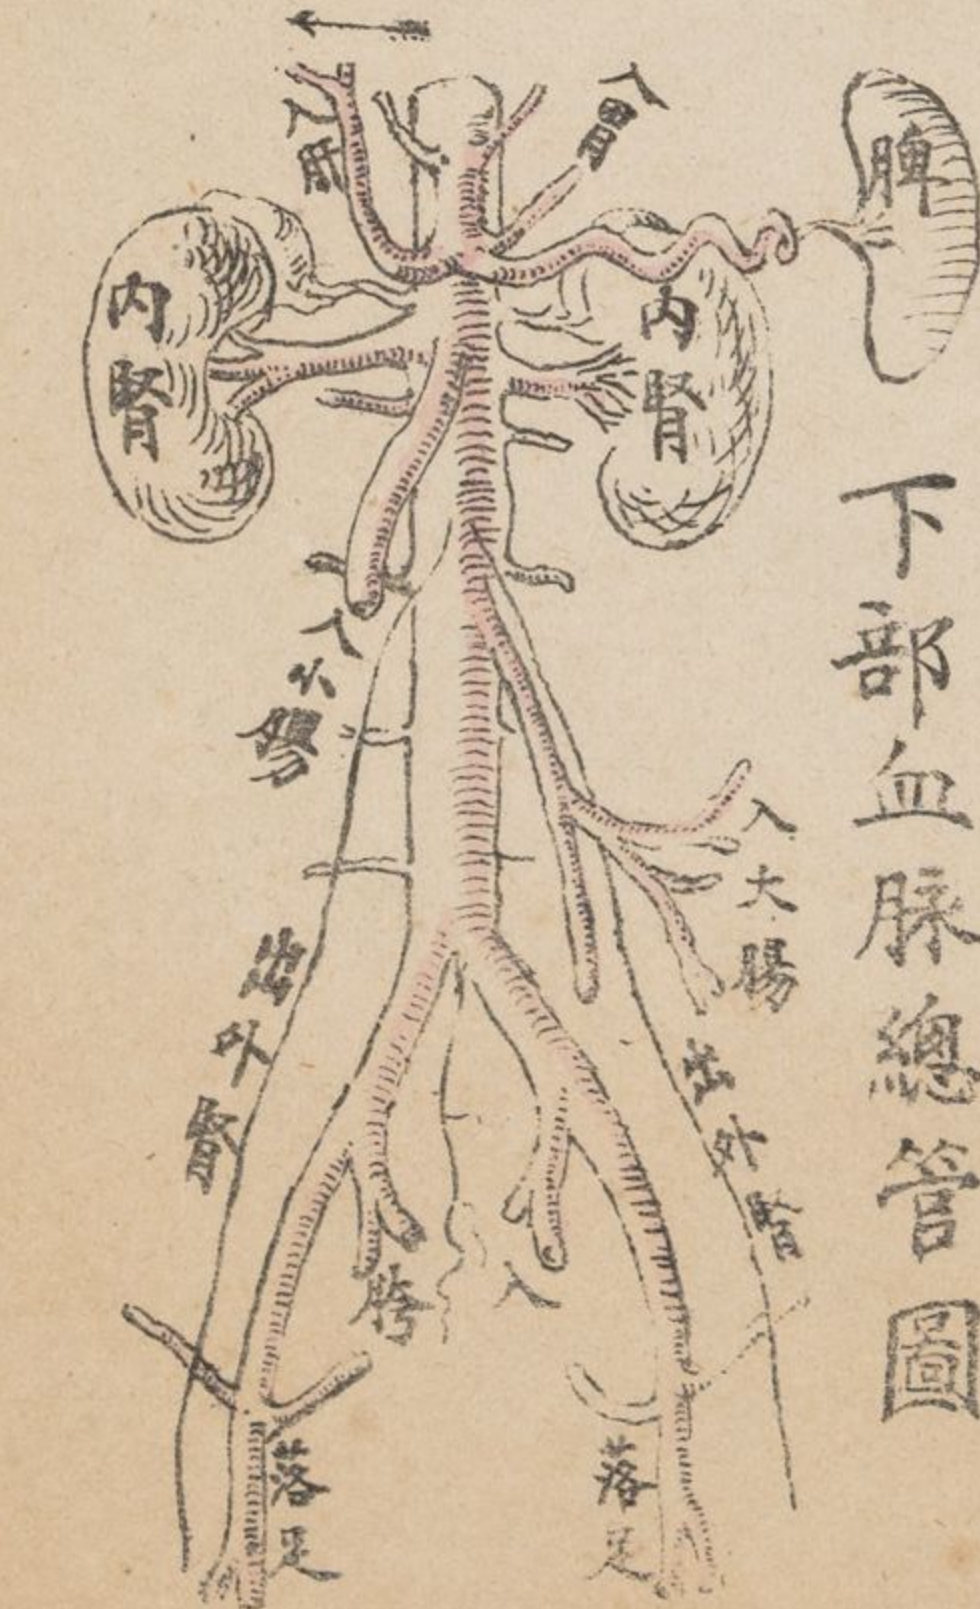 下部血脉總管圖
脾
入胃
入肝
内腎
内腎
入小腸
入大腸
出外腎
出外腎
入胯
落足
落足